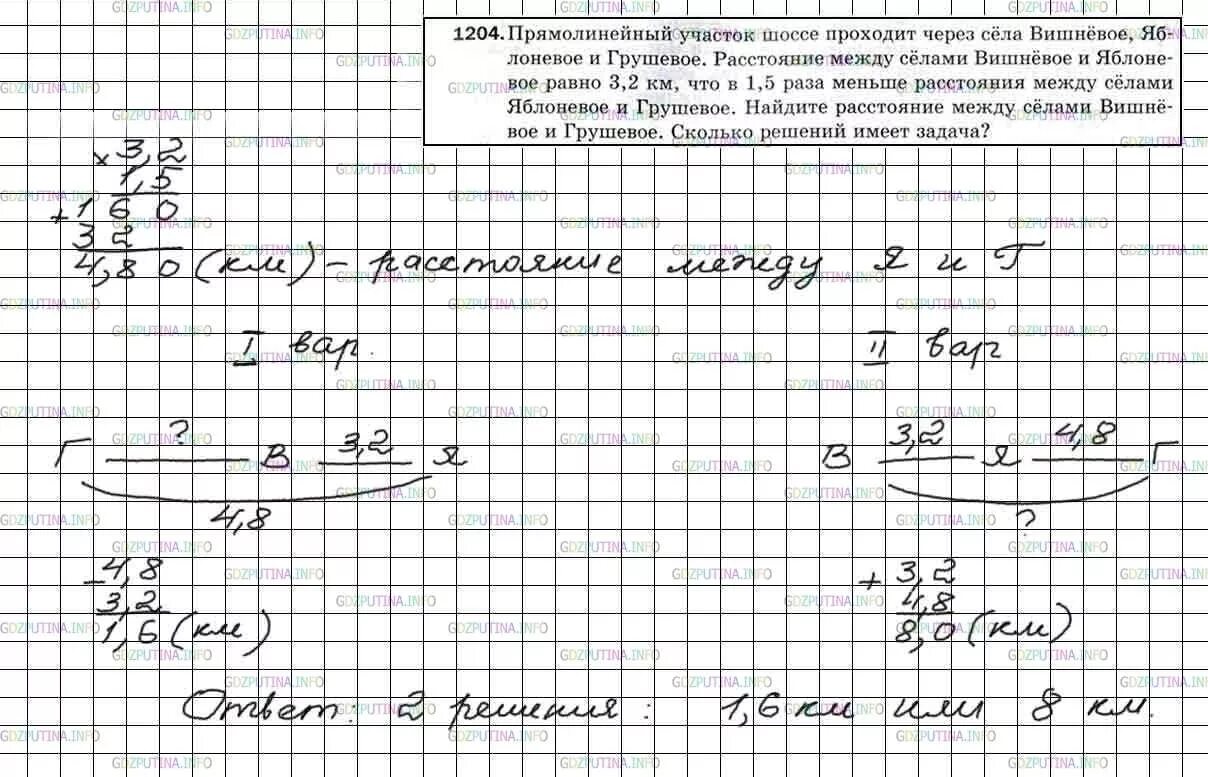 1204. Прямолинейный участок шоссе проходит через сёла Вишнёвое, Яб-
лоневое и Грушевое. Расстояние между сёлами Вишнёвое и Яблоне-
вое равно 3,2 км, что в 1,5 раза меньше расстояния между сёлами
Яблоневое и Грушевое. Найдите расстояние между сёлами Вишнё-
вое и Грушевое. Сколько решений имеет задача?
× 3,2
1,5
+ 1 6 0
3 2
4,8 0 (км) – расстояние между Я и Г
I вар.
II вар
Г ? В 3,2 Я
4,8
В 3,2 Я 4,8 Г
?
- 4,8
3,2
1,6 (км)
+ 3,2
4,8
8,0 (км)
Ответ: 2 решения: 1,6 км или 8 км.
GDZPUTINA.INFO